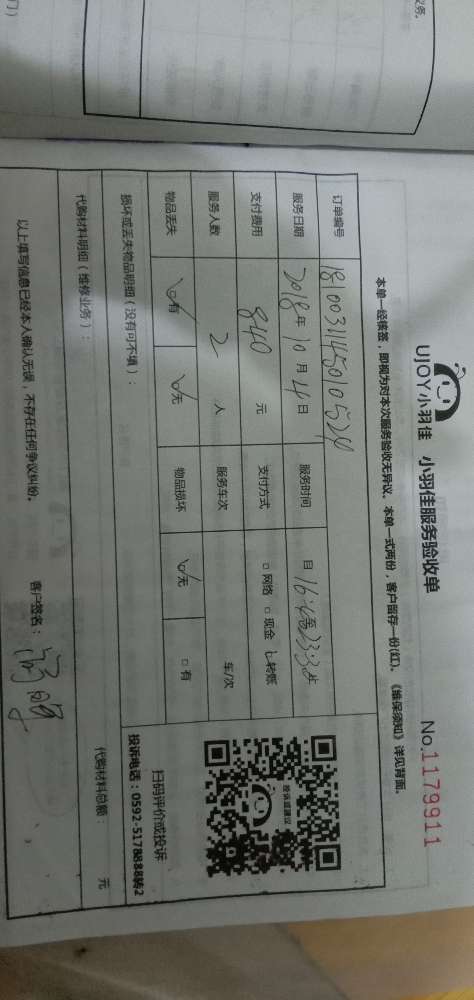 务。
UJOY小羽佳 小羽佳服务验收单 No.1179911
本单一经核签,即视为对本次服务验收无异议。本单一式两份,客户留存一份(红)。《维保须知》详见背面。
订单编号
服务日期 2018年10月4日 服务时间 自16:
支付费用 840 元 支付方式 □网络 □现金 □转账
服务人数 2 人 服务车次 车/次
物品丢失 □有 □无 物品损坏 □无 □有
损坏或丢失物品明细(没有可不填):
代购材料明细(维修业务):
代购材料总额: 元
投诉或建议
扫码评价或投诉
投诉电话:0592-5178888转2
以上填写信息已经本人确认无误,不存在任何争议纠纷。 客户签名: